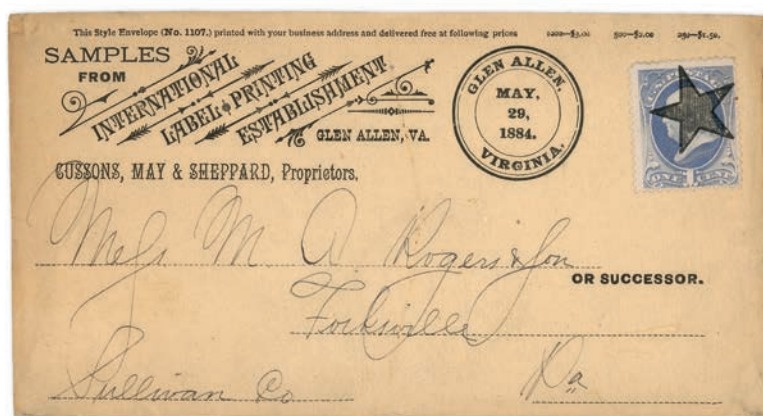 This Style Envelope (No. 1107.) printed with your business address and delivered free at following prices 1000—$3.00 500—$2.00 250—$1.50.
SAMPLES
FROM
INTERNATIONAL
LABEL & PRINTING
ESTABLISHMENT
GLEN ALLEN, VA.
CUSSONS, MAY & SHEPPARD, Proprietors.
GLEN ALLEN,
MAY,
29,
1884.
VIRGINIA.
Mess M. A. Rogers & Son
OR SUCCESSOR.
Forksville
Sullivan Co Pa